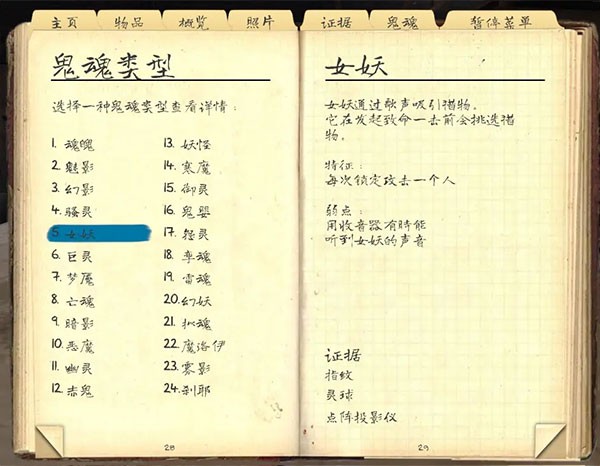 主页
物品
概览
照片
证据
鬼魂
暂停菜单
鬼魂类型
选择一种鬼魂类型查看详情：
1. 魂魄
2. 魅影
3. 幻影
4. 骚灵
5. 女妖
6. 巨灵
7. 梦魇
8. 亡魂
9. 暗影
10. 恶魔
11. 幽灵
12. 赤鬼
13. 妖怪
14. 寒魔
15. 御灵
16. 鬼婴
17. 怨灵
18. 孪魂
19. 雷魂
20. 幻妖
21. 拟魂
22. 魔洛伊
23. 雾影
24. 刹耶
28
女妖
女妖通过歌声吸引猎物。
它在发起致命一击前会挑选猎
物。
特征：
每次锁定攻击一个人
弱点：
用收音器有時能
听到女妖的声音
证据
指纹
灵球
点阵投影仪
29